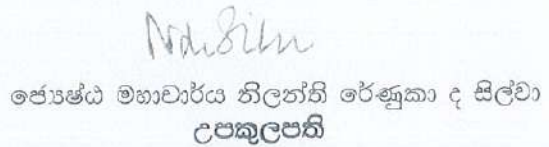 ජ්‍යෙෂ්ඨ මහාචාර්ය තිලන්ති රේණුකා ද සිල්වා
උපකුලපති